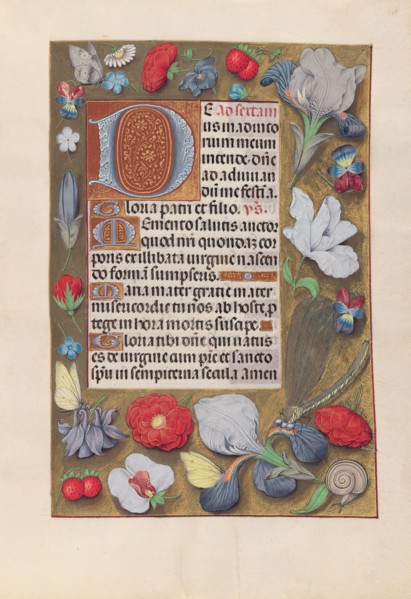 DE ad sextam
us in adiuto
rium meum
intende. dñe
ad adiuuan
dũ me festīa.
Gloria patri et filio. ys̃.
Memento salutis auctor
quod nr̃i quondaz cor
poris ex illibata uirgine nascen
do formã sumpseris.
Maria mater gratie mater
misericordie tu nos ab hoste p
tege in hora mortis suscipe.
Gloria tibi dñe qui natus
es de uirgine cum pr̃e et sancto
spũ in sempiterna secula amen